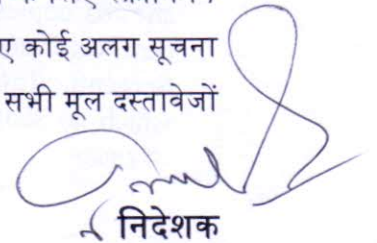 ए कोई अलग सूचना
सभी मूल दस्तावेजों
निदेशक